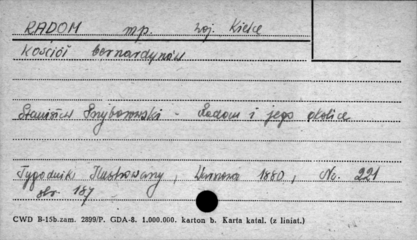 RADOM mp. woj. Kielce
Kościół bernardynów
Stanisław - Radom i jego okolice
Tygodnik Ilustrowany, 1880, No. 221
str. 187
CWD B-15b.zam. 2899/P. GDA-8. 1.000.000. karton b. Karta katal. (z liniat.)